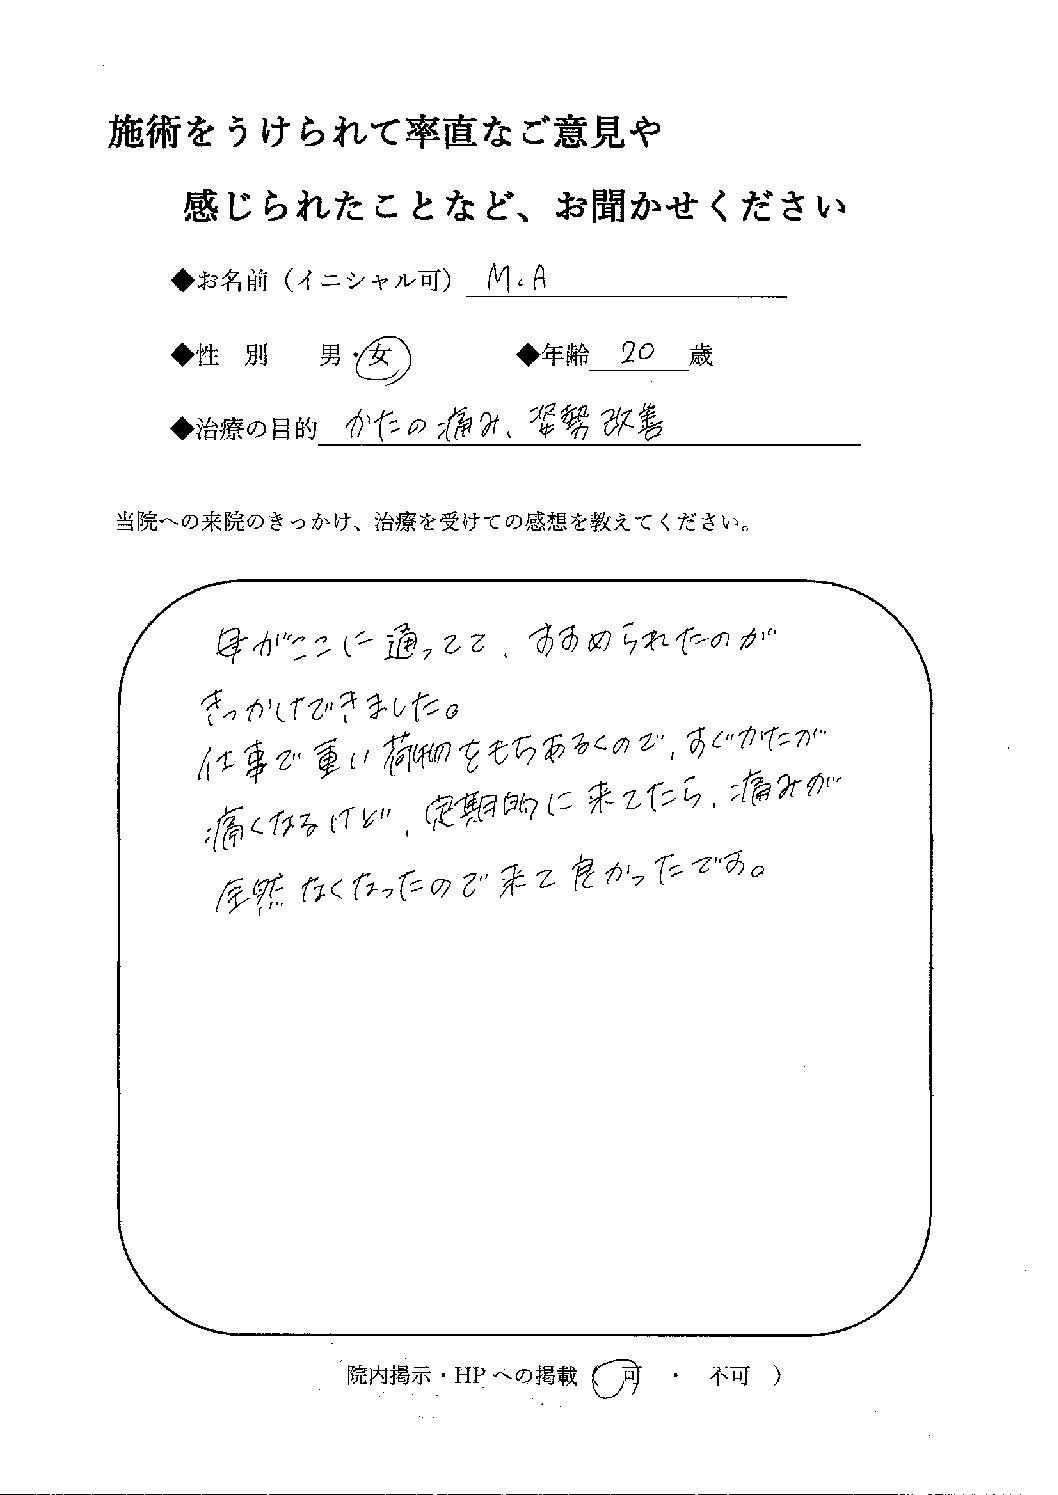 施術をうけられて率直なご意見や
感じられたことなど、お聞かせください
◆お名前（イニシャル可） M.A
◆性　別　　男・女　　　　◆年齢 20 歳
◆治療の目的 かたの痛み、姿勢改善
当院への来院のきっかけ、治療を受けての感想を教えてください。
母がここに通ってて、すすめられたのが
きっかけできました。
仕事で重い荷物をもちあるくので、すぐかたが
痛くなるけど、定期的に来てたら、痛みが
全然なくなったので来て良かったです。
院内掲示・HPへの掲載（ 可　・　不可　）